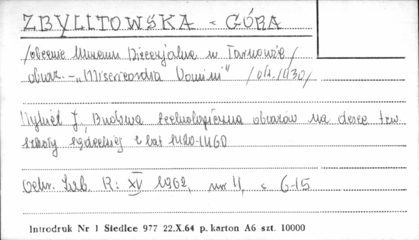 ZBYLITOWSKA - GÓRA
/obecnie Muzeum Diecezjalne w Tarnowie/
obraz. - "Misericordia Domini" /ok. 1430/
Budowa technologiczna obrazów na desce tzw.
szkoły sądeckiej z lat 1420-1460
Ochr. Zab. R: XV 1962, nr 11, s 6-15
Introdruk Nr 1 Siedlce 977 22.X.64 p. karton A6 szt. 10000